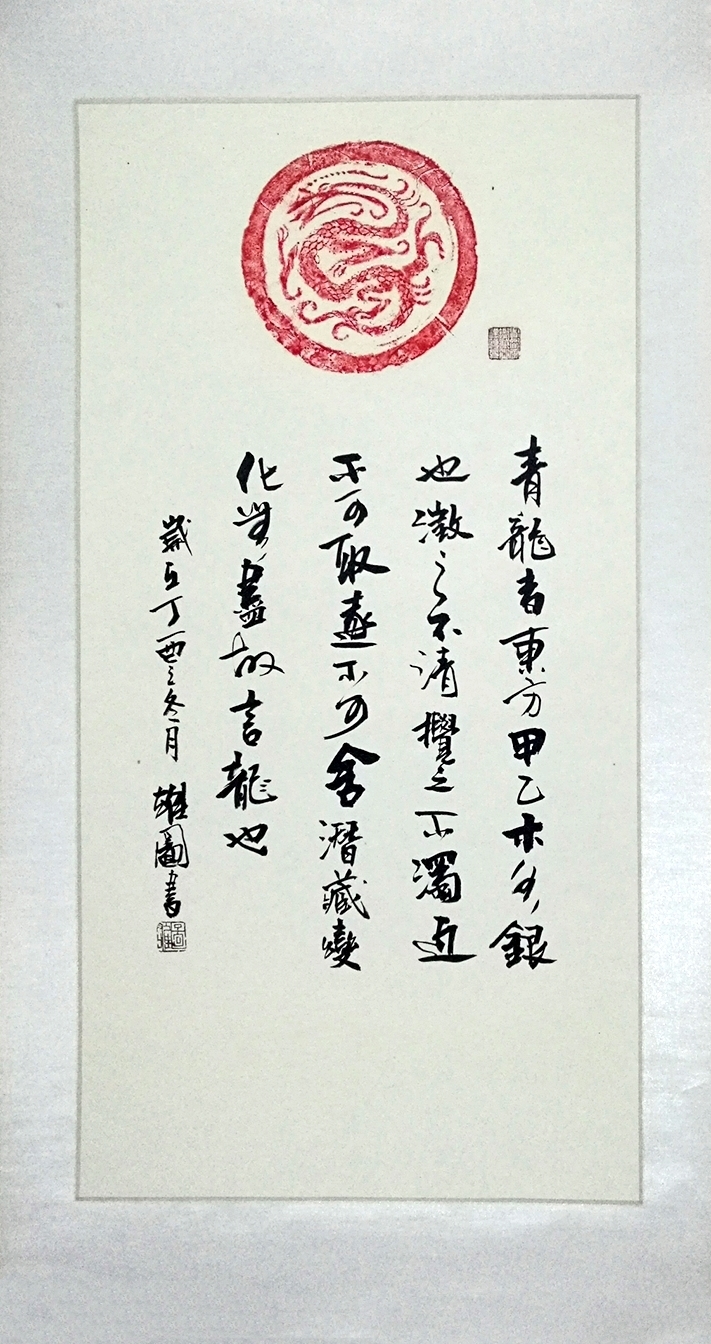 青龍者東方甲乙木水銀
也澂之不清攪之不濁近
不可取遠不可舍潛藏變
化無盡故言龍也
歲在丁酉之冬月 雄圖書